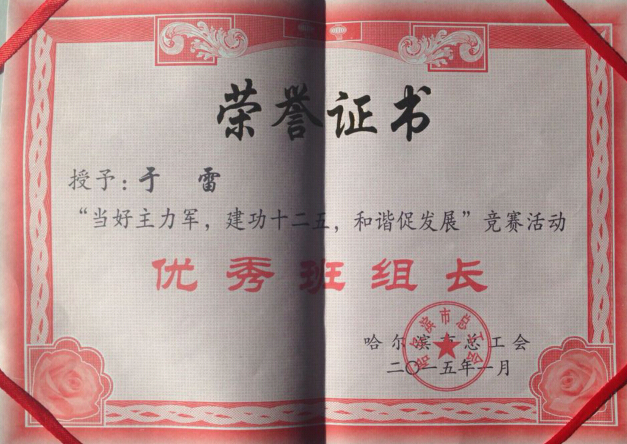 荣誉证书
授予：于 雷
“当好主力军，建功十二五，和谐促发展”竞赛活动
优秀班组长
哈尔滨市总工会
二〇一五年一月
哈尔滨市总工会